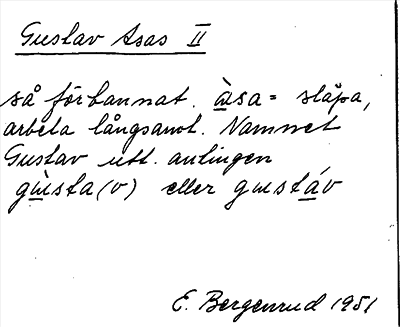 Gustav Asas II
så förbannat. àsa = släpa,
arbeta långsamt. Namnet
Gustav utt. antingen
gùsta(v) eller gustáv
E. Bergenrud 1951